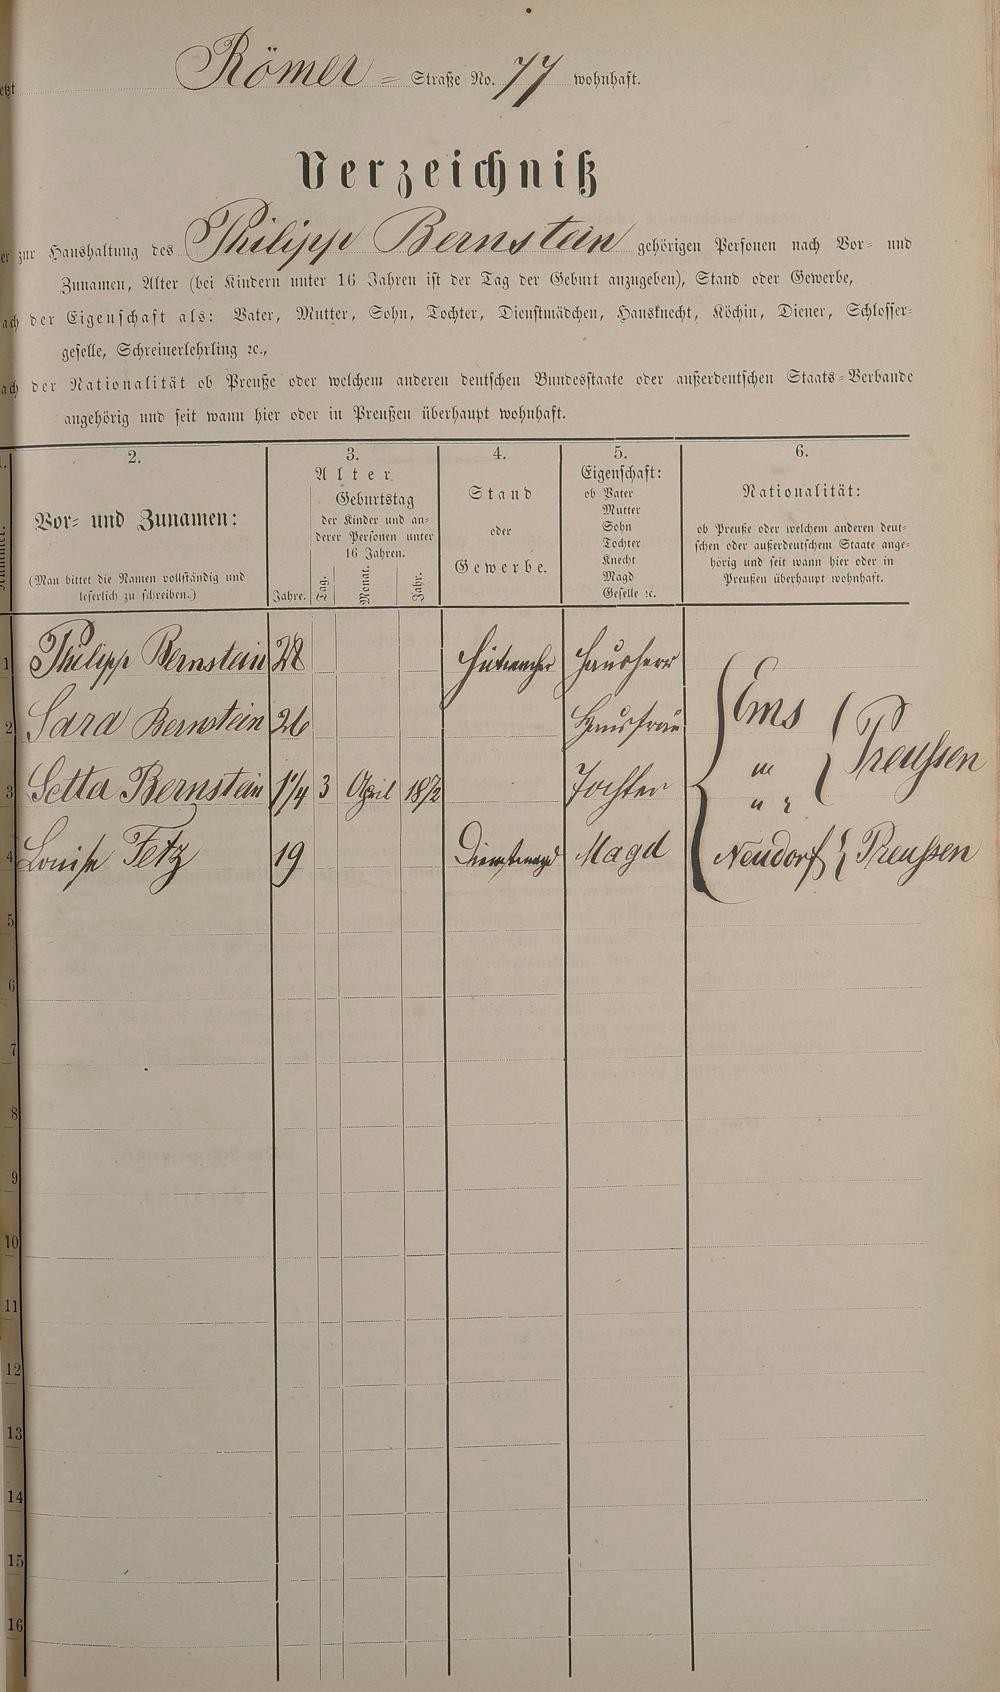 etzt Römer = Straße No. 77 wohnhaft.
Verzeichniß
er zur Haushaltung des Philipp Bernstein gehörigen Personen nach Vor- und
Zunamen, Alter (bei Kindern unter 16 Jahren ist der Tag der Geburt anzugeben), Stand oder Gewerbe,
ach der Eigenschaft als: Vater, Mutter, Sohn, Tochter, Dienstmädchen, Hausknecht, Köchin, Diener, Schlosser-
geselle, Schreinerlehrling ꝛc.,
ach der Nationalität ob Preuße oder welchem anderen deutschen Bundesstaate oder außerdeutschen Staats-Verbande
angehörig und seit wann hier oder in Preußen überhaupt wohnhaft.
1. 2. 3. 4. 5. 6.
Nummer.
Vor- und Zunamen:
(Man bittet die Namen vollständig und
leserlich zu schreiben.)
Alter
Jahre.
Geburtstag
der Kinder und an-
derer Personen unter
16 Jahren.
Tag. Monat. Jahr.
Stand
oder
Gewerbe.
Eigenschaft:
ob Vater
Mutter
Sohn
Tochter
Knecht
Magd
Geselle ꝛc.
Nationalität:
ob Preuße oder welchem anderen deut-
schen oder außerdeutschem Staate ange-
hörig und seit wann hier oder in
Preußen überhaupt wohnhaft.
1 Philipp Bernstein 28 Hutmacher Hausherr
2 Sara Bernstein 26 Hausfrau Ems Preußen
3 Setta Bernstein 1 1/4 3 April 1872 Tochter " "
4 Louise Fetz 19 Dienstmagd Magd Neudorf Preußen
5
6
7
8
9
10
11
12
13
14
15
16